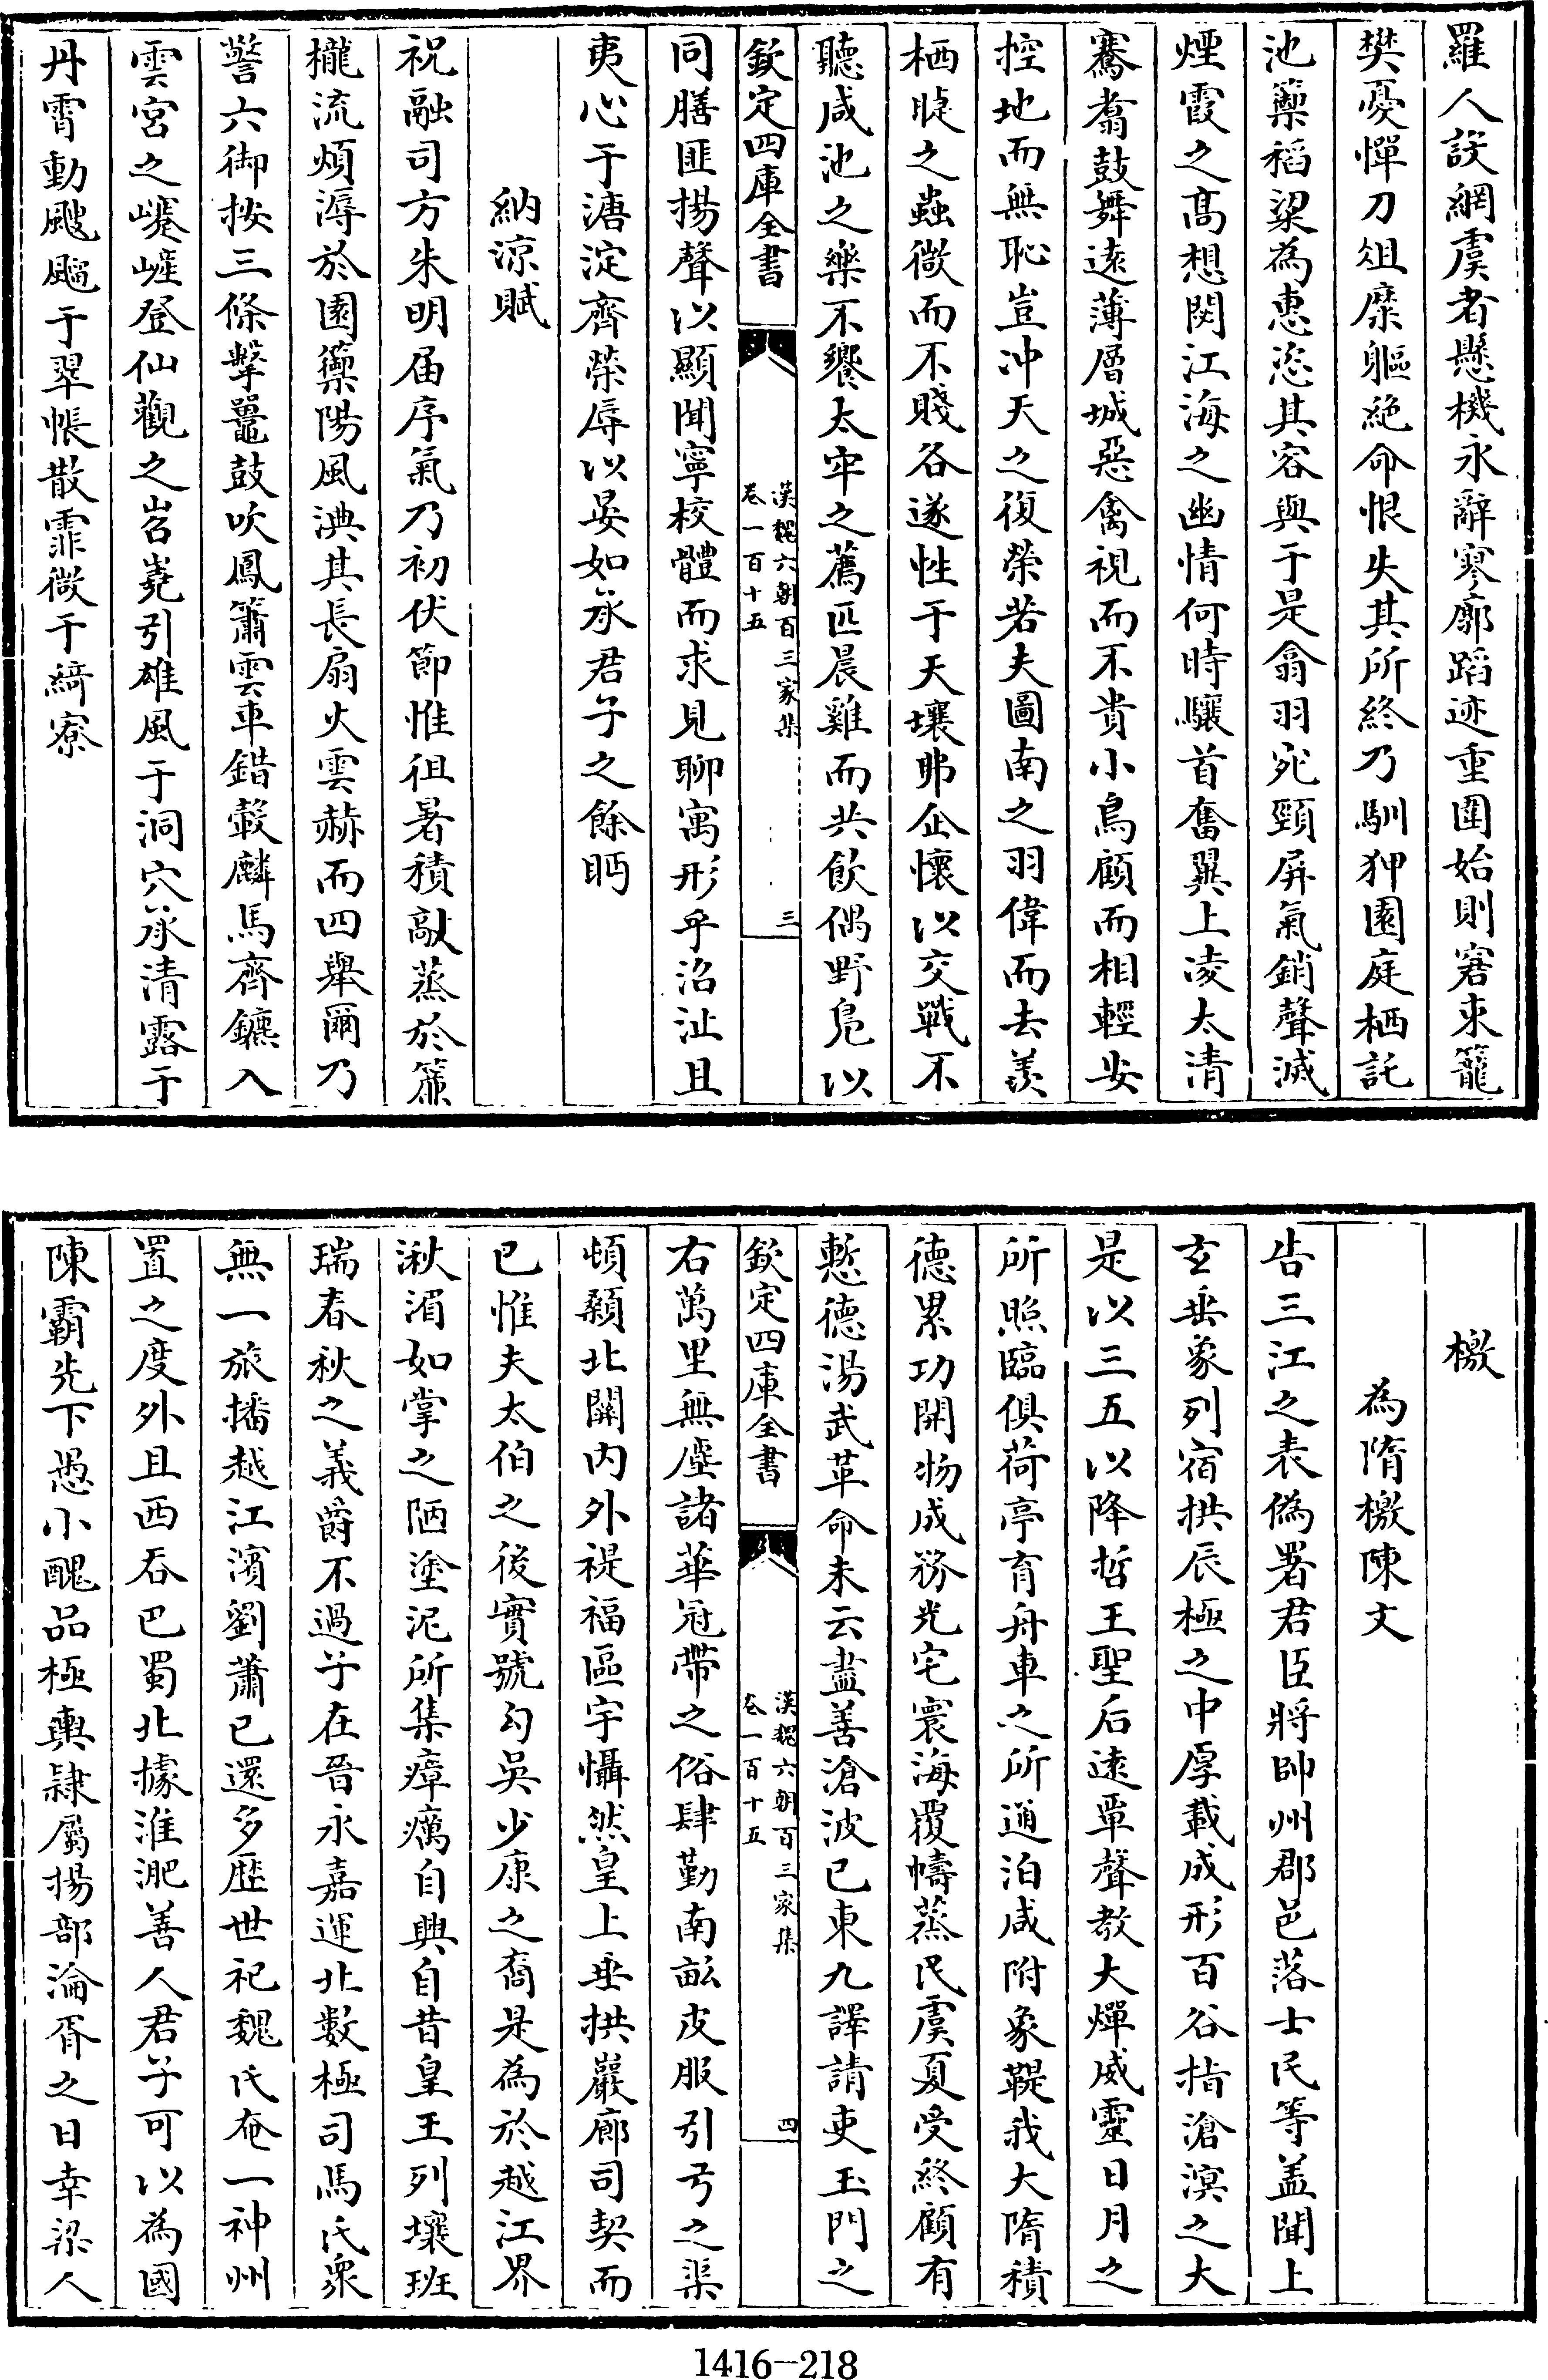 羅人設網虞者懸機永辭寥廓蹈迹重圍始則窘束籠
樊憂憚刀俎靡軀絶命恨失其所終乃馴狎園庭栖託
池籞稻粱為惠恣其容與于是翕羽宛頸屏氣銷聲滅
煙霞之髙想閔江海之幽情何時驤首奮翼上凌太清
騫翥鼓舞逺薄層城惡禽視而不貴小鳥顧而相輕安
控地而無恥豈沖天之復榮若夫圖南之羽偉而去羨
栖睫之蟲微而不賤各遂性于天壤弗企懷以交戰不
聽咸池之樂不饗太牢之薦匹晨雞而共飲偶野鳬以
欽定四庫全書
漢魏六朝百三家集
卷一百十五
三
同膳匪揚聲以顯聞寧校體而求見聊寓形乎沼沚且
夷心于溏淀齊榮辱以晏如承君子之餘眄
納涼賦
祝融司方朱明届序氣乃初伏節惟徂暑積歊蒸於簾
櫳流煩溽於園籞陽風淟其長扇火雲赫而四舉爾乃
警六御按三條擊鼉鼓吹鳳簫雲車錯轂麟馬齊鑣入
雲宮之嵕嵼登仙觀之岧嶤引雄風于洞穴承清露于
丹霄動颼飀于翠帳散霏微于綺寮
檄
為隋檄陳文
告三江之表偽署君臣將帥州郡邑落士民等盖聞上
玄垂象列宿拱辰極之中厚載成形百谷指滄溟之大
是以三五以降哲王聖后逺覃聲教大燀威靈日月之
所照臨俱荷亭育舟車之所通泊咸附象鞮我大隋積
德累功開物成務光宅寰海覆幬蒸民虞夏受終顧有
慙德湯武革命未云盡善滄波已東九譯請吏玉門之
欽定四庫全書
漢魏六朝百三家集
卷一百十五
四
右萬里無塵諸華冠帶之俗肆勤南畝皮服引弓之渠
頓顙北闕内外禔福區宇懾然皇上垂拱巖廊司契而
已惟夫太伯之後實號勾吳少康之裔是為於越江界
湫湄如掌之陋塗泥所集瘴癘自興自昔皇王列壤班
瑞春秋之義爵不過子在晉永嘉運北數極司馬氏衆
無一旅播越江濱劉蕭已還多歴世祀魏氏奄一神州
置之度外且西吞巴蜀北據淮淝善人君子可以為國
陳霸先下愚小醜品極輿隸屬揚部淪胥之日幸梁人
1416-218